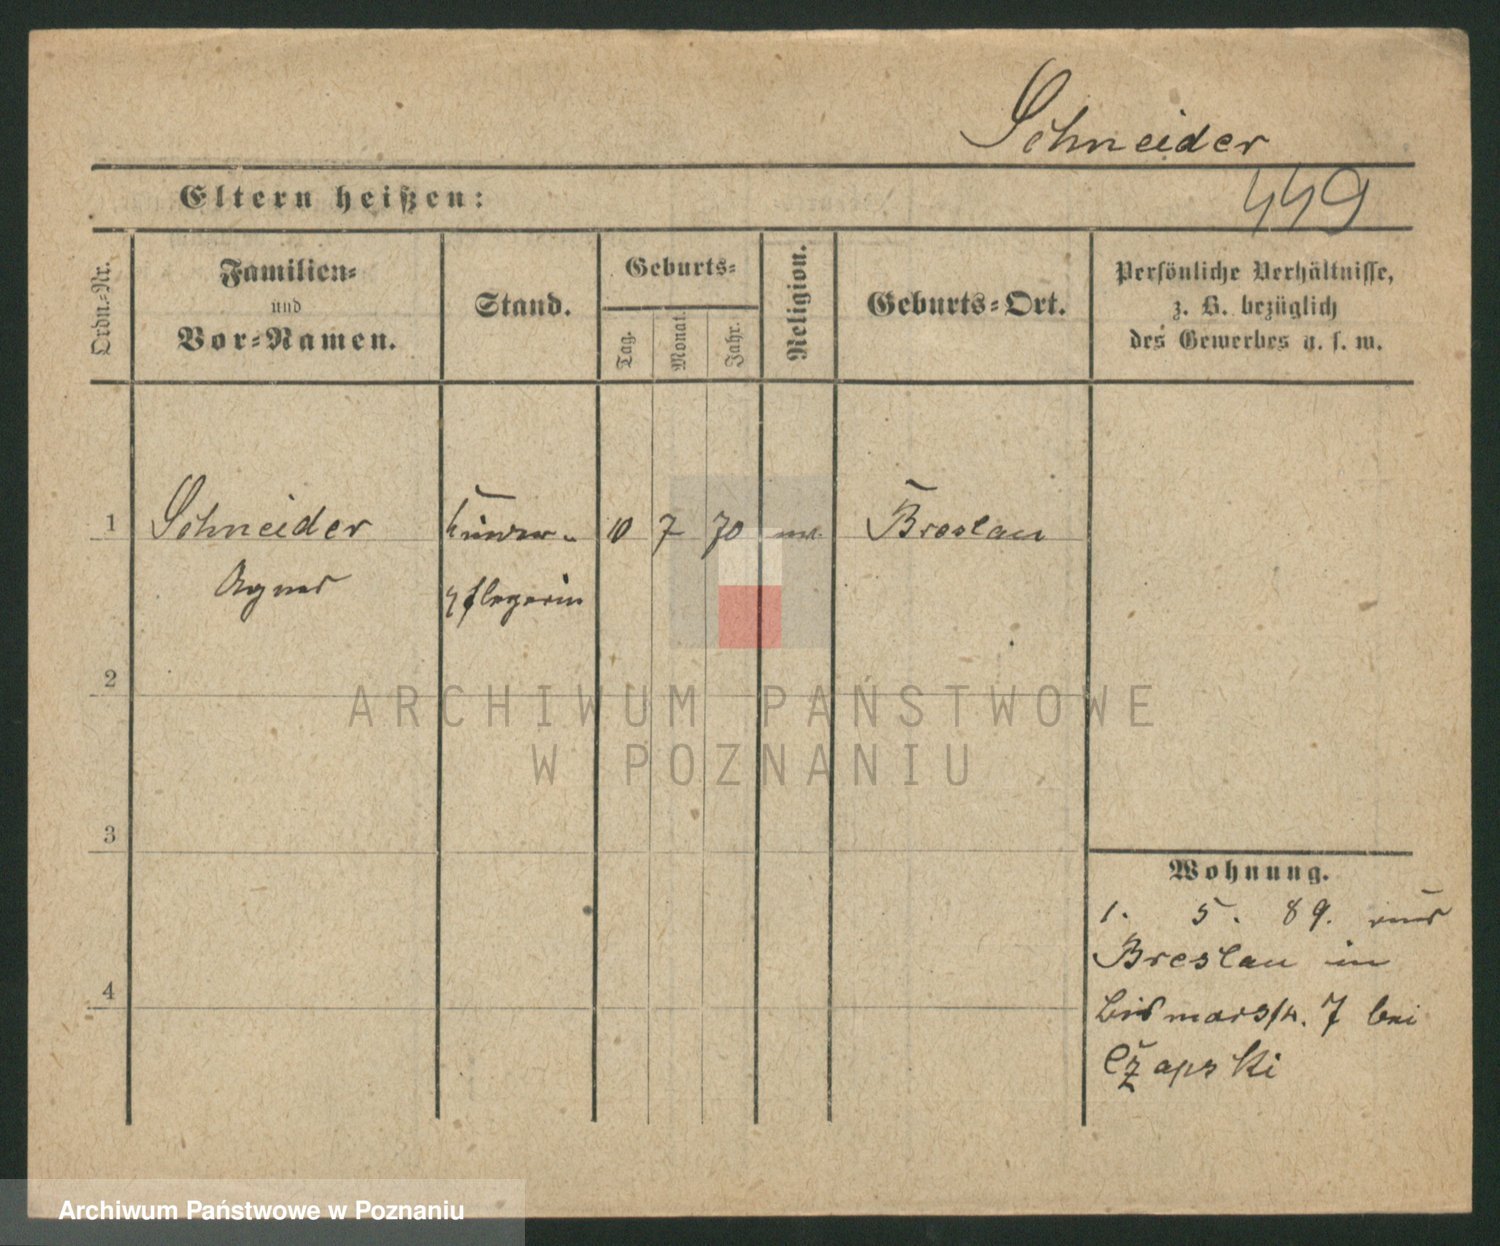 Schneider
449
Eltern heißen:
Ordn.-Nr.
Familien-
und
Vor-Namen.
Stand.
Geburts-
Tag.
Monat.
Jahr.
Religion.
Geburts-Ort.
Persönliche Verhältnisse,
z. B. bezüglich
des Gewerbes u. s. w.
1 Schneider Kinder- 10 7 70 Breslau
Agnes pflegerin
2
ARCHIWUM PAŃSTWOWE
W POZNANIU
3
Wohnung.
1. 5. 89. aus
Breslau in
4
Bismarckstr. 7 bei
Czapski
Archiwum Państwowe w Poznaniu